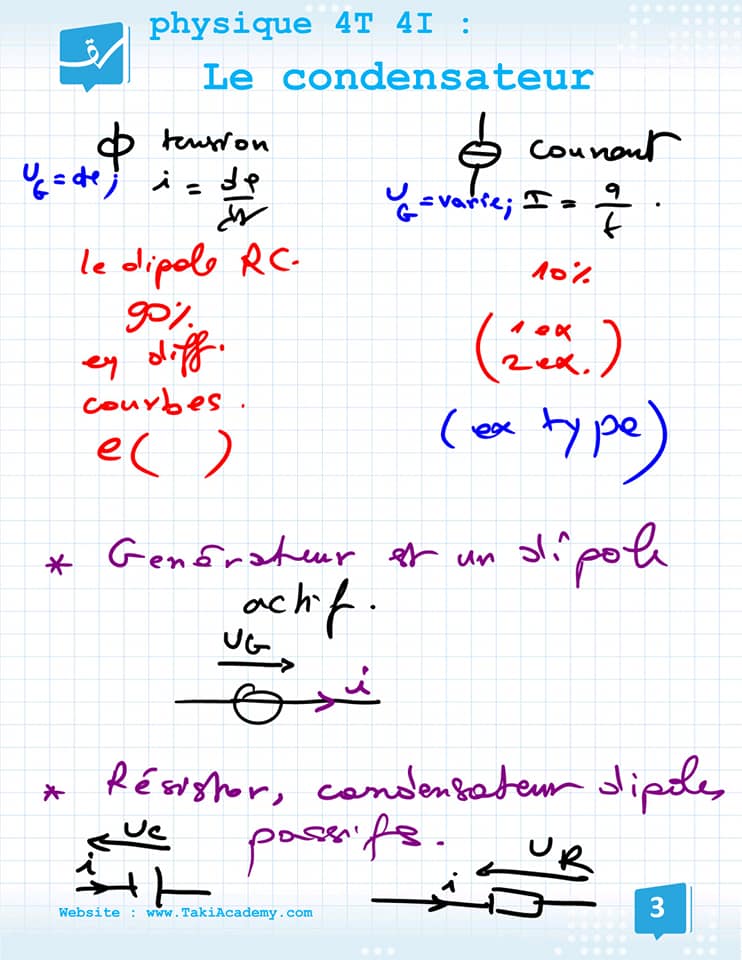 physique 4T 4I :
Le condensateur
tension
courant
U_G = de ; i = dq/dt
U_G = varie; I = q/t .
le dipole RC.
90%
eq diff.
courbes .
e( )
10%
(1 ex
2 ex.)
(ex type)
* Générateur est un dipole
actif.
UG
i
* Résistor, condensateur dipoles
passifs.
Uc
i
UR
i
Website : www.TakiAcademy.com
3